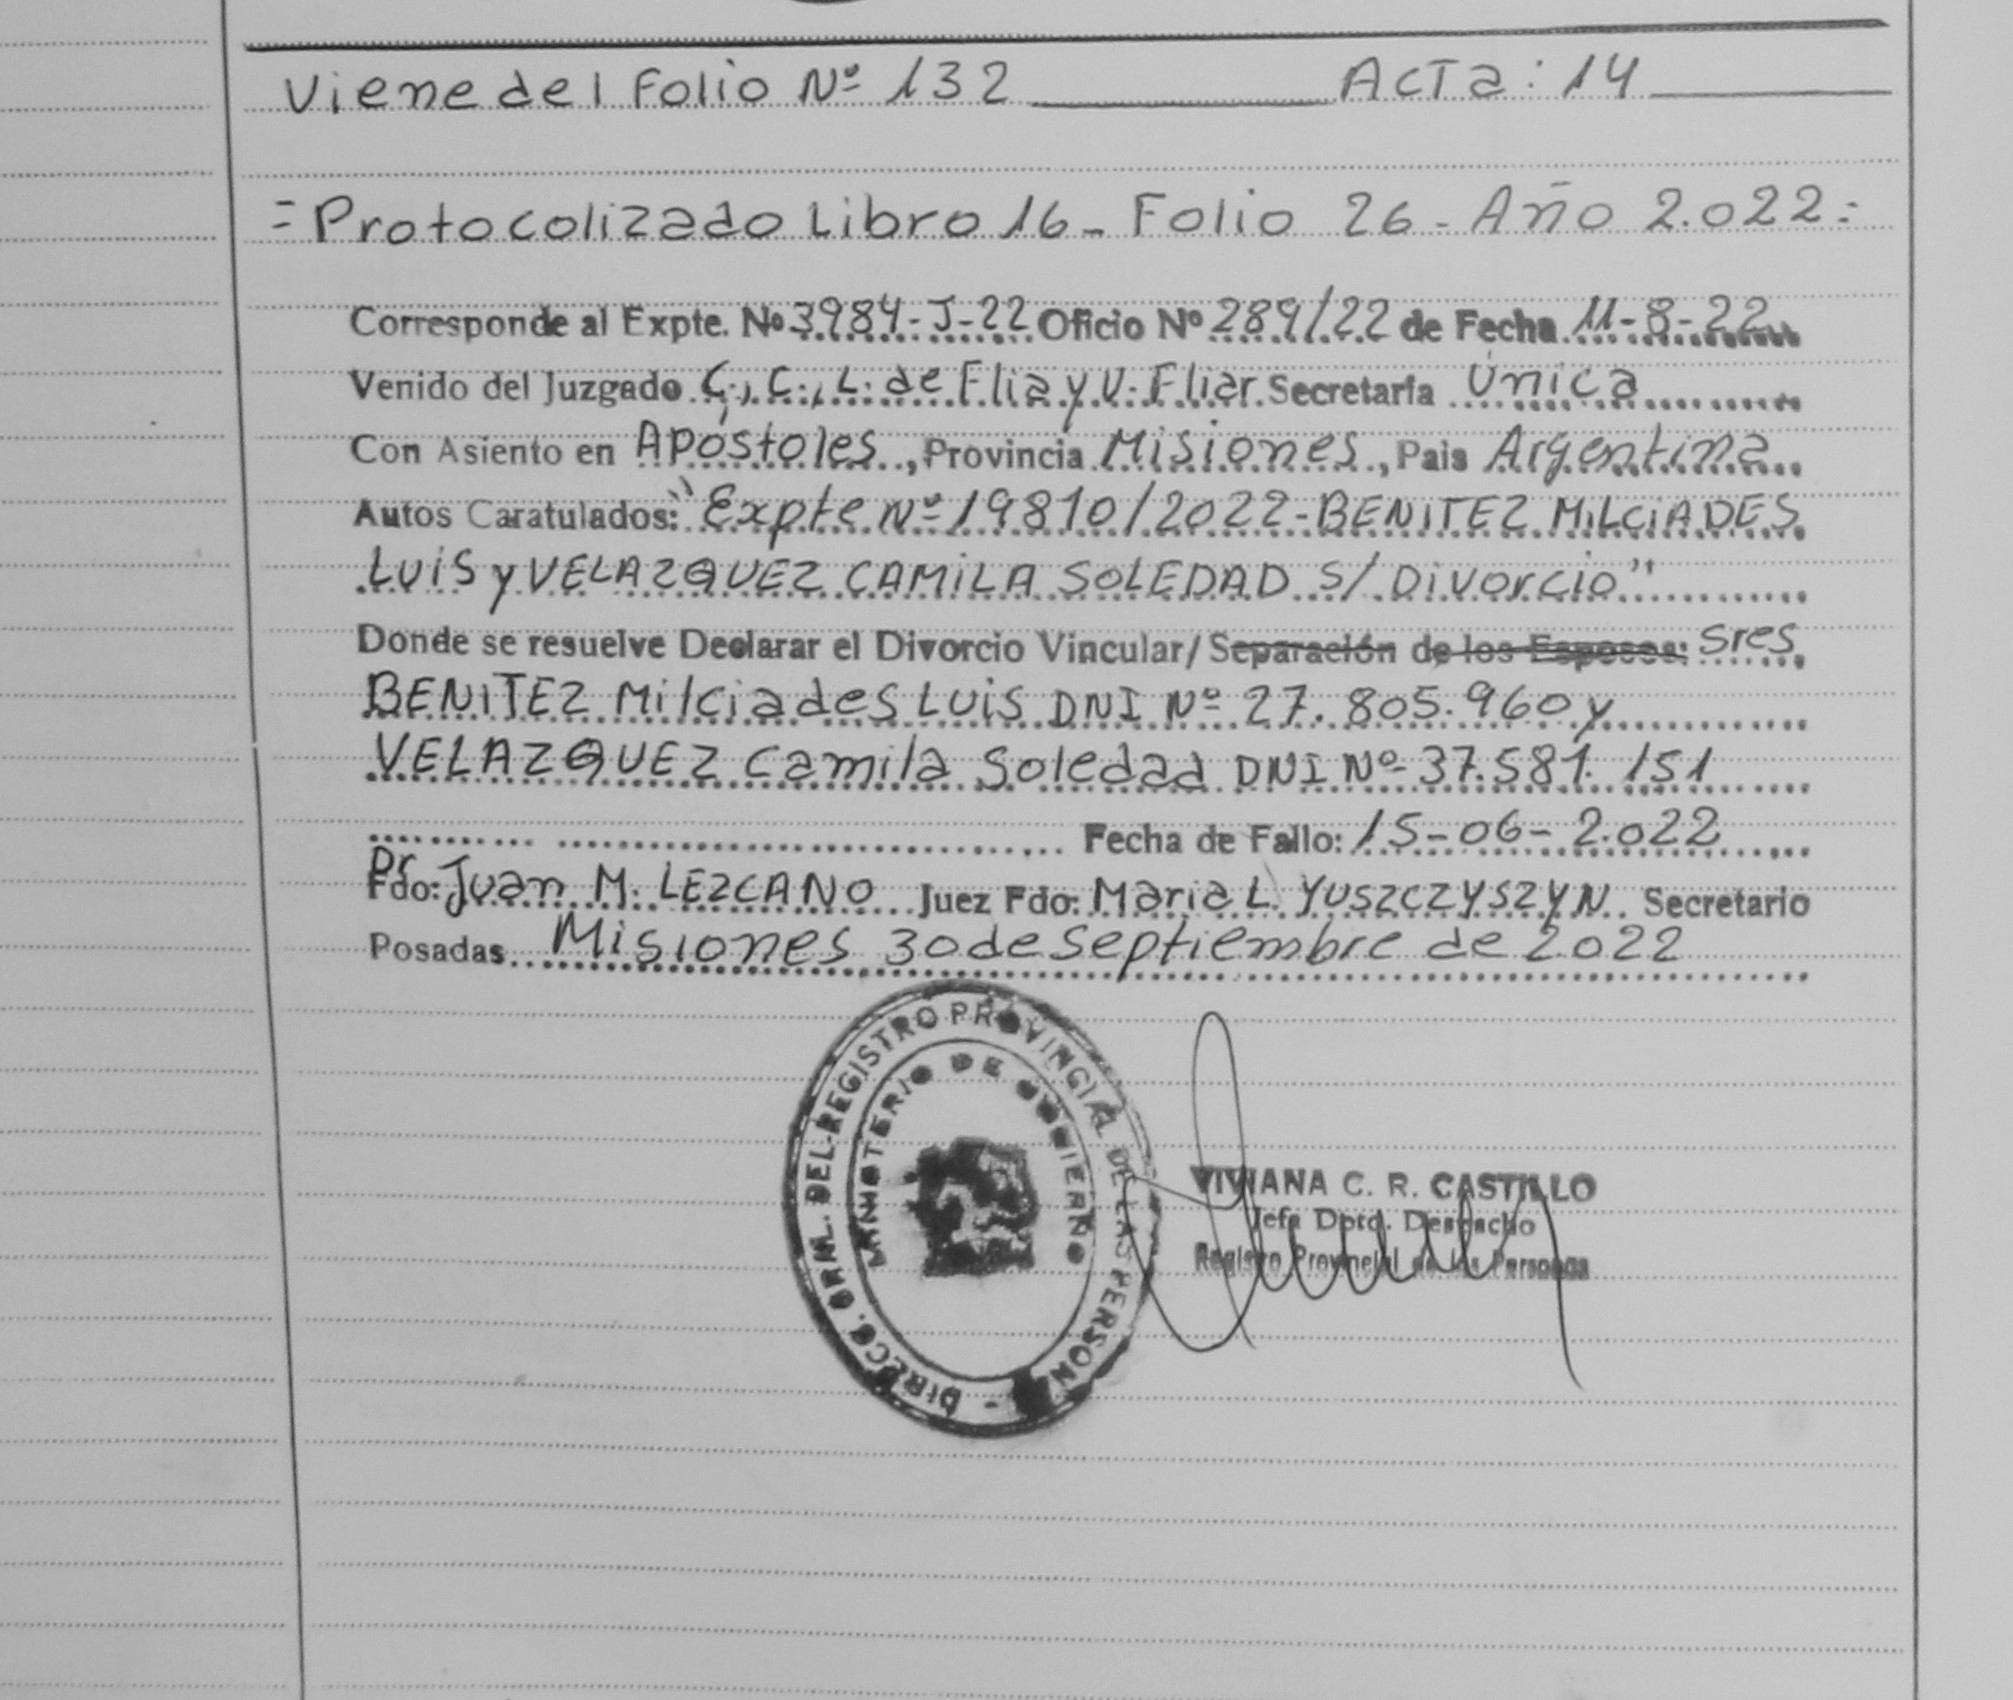 Viene del Folio Nº 132 ACTA: 14
= Protocolizado Libro 16 - Folio 26 - Año 2.022 =
Corresponde al Expte. Nº 3984-J-22 Oficio Nº 289/22 de Fecha 11-8-22
Venido del Juzgado C., C., L. de Flia y V. Fliar. Secretaría Única
Con Asiento en Apóstoles, Provincia Misiones, Pais Argentina
Autos Caratulados: "Expte Nº 19810/2022-BENITEZ MILCIADES
LUIS y VELAZQUEZ CAMILA SOLEDAD S/ Divorcio"
Donde se resuelve Declarar el Divorcio Vincular/ Separación de los Esposos: Sres
BENITEZ Milciades LUIS DNI Nº 27.805.960 y
VELAZQUEZ Camila Soledad DNI Nº 37.581.151
Fecha de Fallo: 15-06-2.022
Dr
Fdo: Juan M. LEZCANO Juez Fdo: Maria L. YUSZCZYSZYN Secretario
Posadas Misiones 30 de septiembre de 2.022
DIRECC. GRAL. DEL REGISTRO PROVINCIAL DE LAS PERSON
MINISTERIO DE GOBIERNO
VIVIANA C. R. CASTILLO
Jefa Dpto. Despacho
Registro Provincial de las Personas